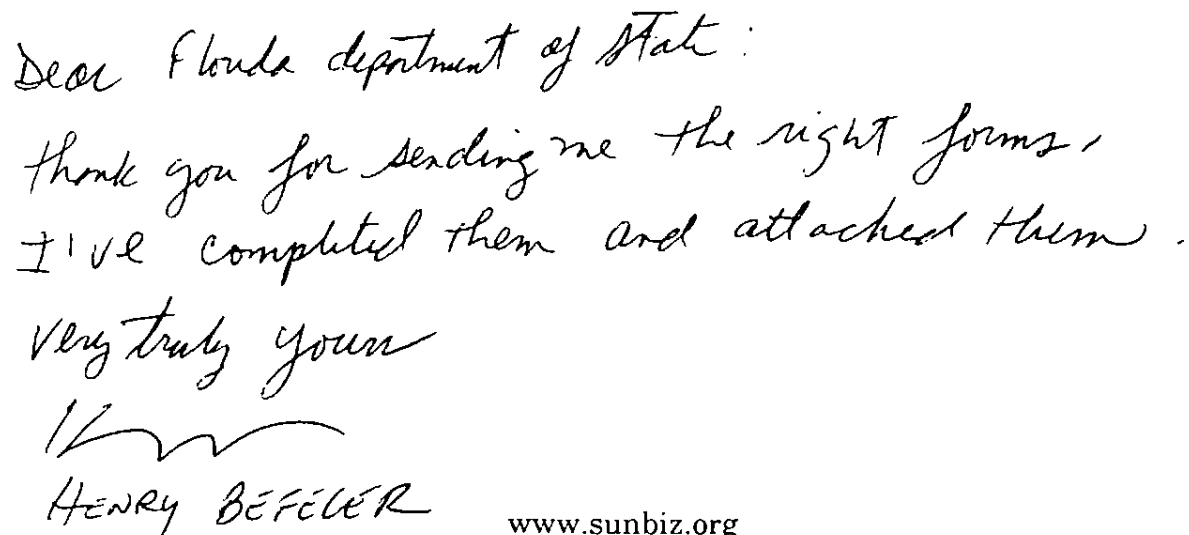 Dear Florida department of State:
thank you for sending me the right forms,
I've completed them and attached them.
very truly yours
HENRY BEFELER
www.sunbiz.org